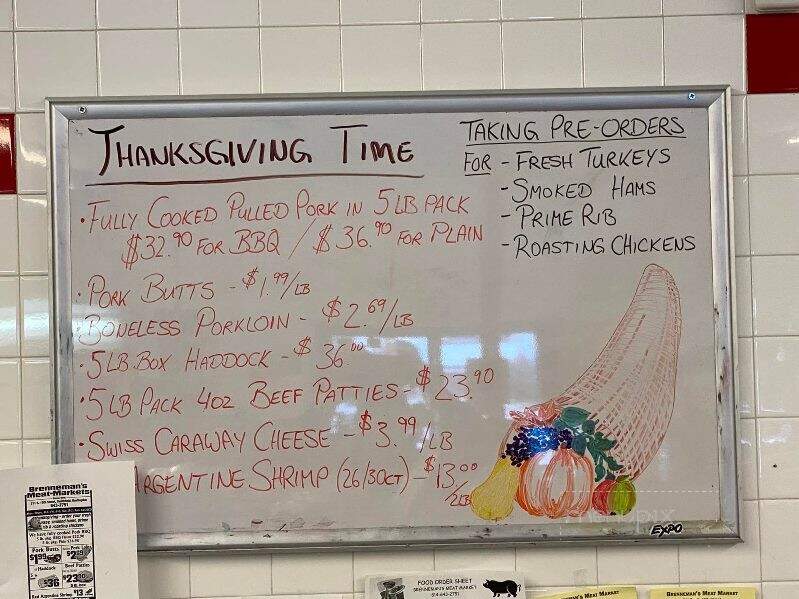 THANKSGIVING TIME
• FULLY COOKED PULLED PORK IN 5 LB PACK
$32.90 FOR BBQ / $36.90 FOR PLAIN
• PORK BUTTS - $1.99/LB
BONELESS PORKLOIN - $2.69/LB
• 5 LB. BOX HADDOCK - $36.00
• 5 LB PACK 4OZ BEEF PATTIES - $23.90
• SWISS CARAWAY CHEESE - $3.99/LB
ARGENTINE SHRIMP (26/30CT) - $13.00
/2LB
TAKING PRE-ORDERS
FOR - FRESH TURKEYS
- SMOKED HAMS
- PRIME RIB
- ROASTING CHICKENS
EXPO
Brenneman's
Meat-Markets
Pork Butts
$1.99
Haddock
$36
Beef Patties
$23.90
Red Argentine Shrimp
$13
FOOD ORDER SHEET
BRENNEMAN'S MEAT MARKET
614-643-2791
MEAT MARKET
BRENNEMAN'S MEAT MARKET